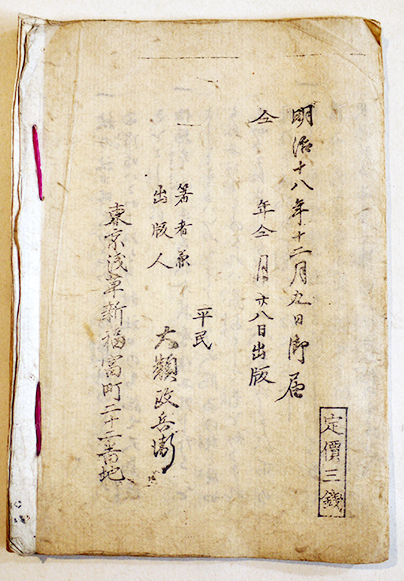 定價三錢
明治十八年十二月九日御届
仝 年仝月廿八日出版
著者兼
出版人
平民
大類政兵衛
東京浅草新福富町二十二番地